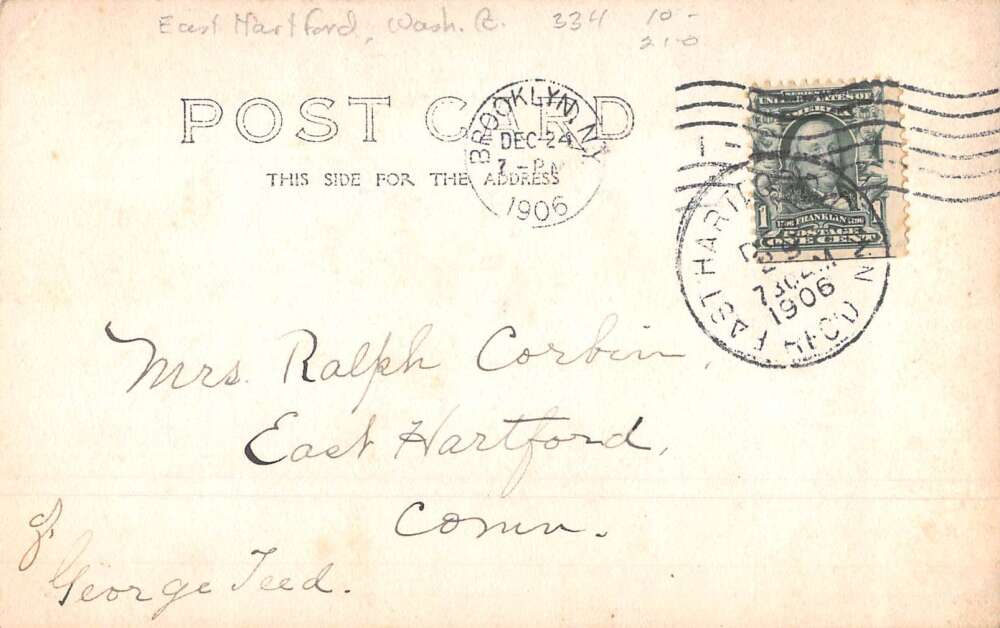 East Hartford, Wash. Co. 334 10-
21-0
POST CARD
THIS SIDE FOR THE ADDRESS
BROOKLYN, N.Y.
DEC 24
7 - PM
1906
1 -
UNITED STATES OF
AMERICA
1 FRANKLIN 1
POSTAGE
ONE CENT
EAST HARTFORD CONN
730 AM
1906
REC'D
Mrs. Ralph Corbin,
East Hartford,
Conn.
George Teed.